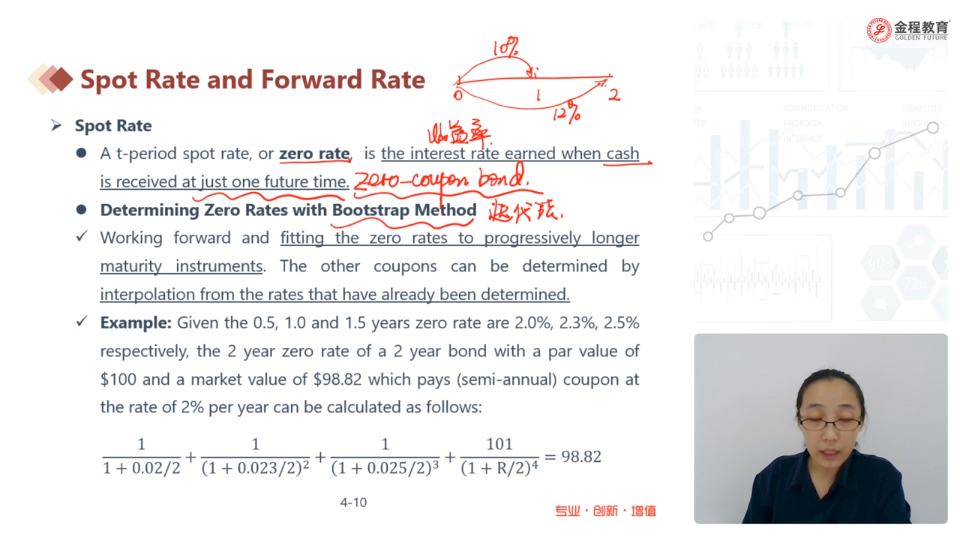 金程教育
GOLDEN FUTURE
10%
0
1
2
12%
Spot Rate and Forward Rate
Spot Rate
收益率.
A t-period spot rate, or zero rate, is the interest rate earned when cash
is received at just one future time. zero-coupon bond.
Determining Zero Rates with Bootstrap Method 迭代法.
Working forward and fitting the zero rates to progressively longer
maturity instruments. The other coupons can be determined by
interpolation from the rates that have already been determined.
Example: Given the 0.5, 1.0 and 1.5 years zero rate are 2.0%, 2.3%, 2.5%
respectively, the 2 year zero rate of a 2 year bond with a par value of
$100 and a market value of $98.82 which pays (semi-annual) coupon at
the rate of 2% per year can be calculated as follows:
1/(1 + 0.02/2) + 1/(1 + 0.023/2)² + 1/(1 + 0.025/2)³ + 101/(1 + R/2)⁴ = 98.82
4-10
专业·创新·增值